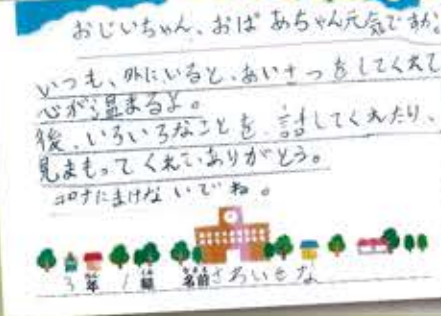 おじいちゃん、おばあちゃん元気ですか。
いつも、外にいると、あいさつをしてくれて
心が温まるよ。
後、いろいろなことを、話してくれたり、
見まもってくれて、ありがとう。
コロナにまけないでね。
3年 1組 名前